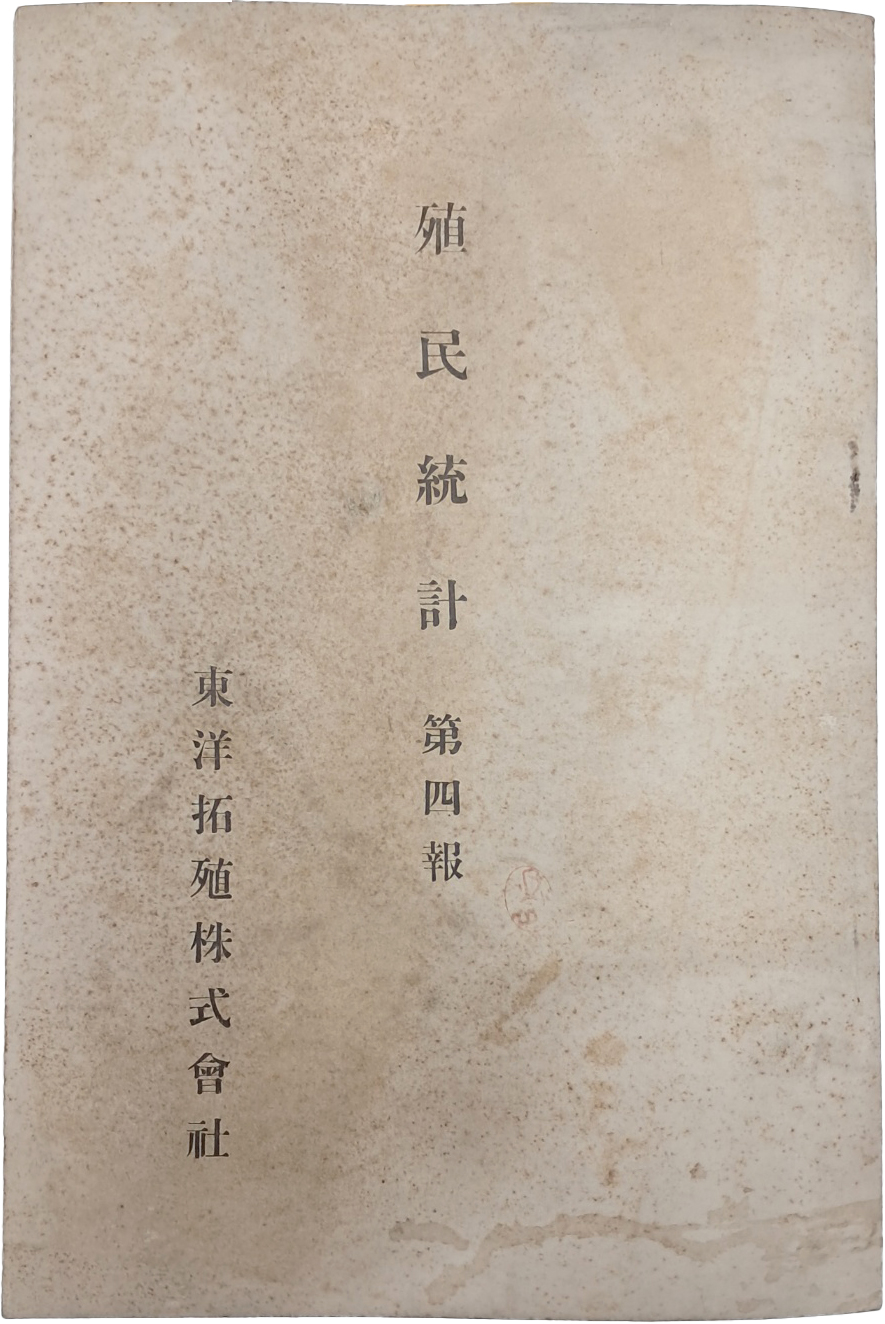 殖民統計 第四報
東洋拓殖株式會社